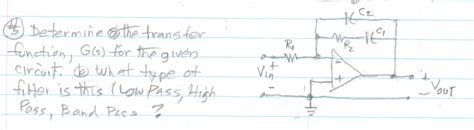 #5 ⓐ Determine the transfer
function, G(s) for the given
circuit. ⓑ What type of
filter is this (Low Pass, High
Pass, Band Pass ?
C2
R1
R2
C1
Vin
+
-
-
+
+
-
VOUT